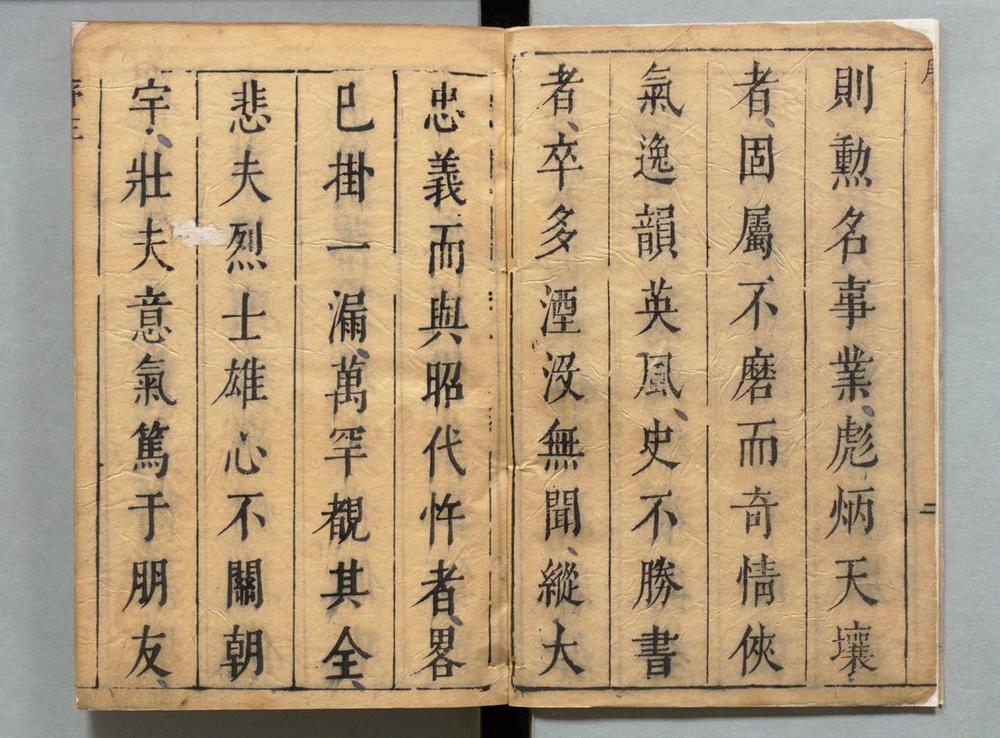 則勲名事業、彪炳天壤
者、固屬不磨而奇情俠
氣逸韻英風、史不勝書
者、卒多湮沒無聞、縱大
忠義而與昭代忤者、畧
已掛一漏、萬罕覩其全、
悲夫烈士雄心不關朝
宇、壯夫意氣篤于朋友、